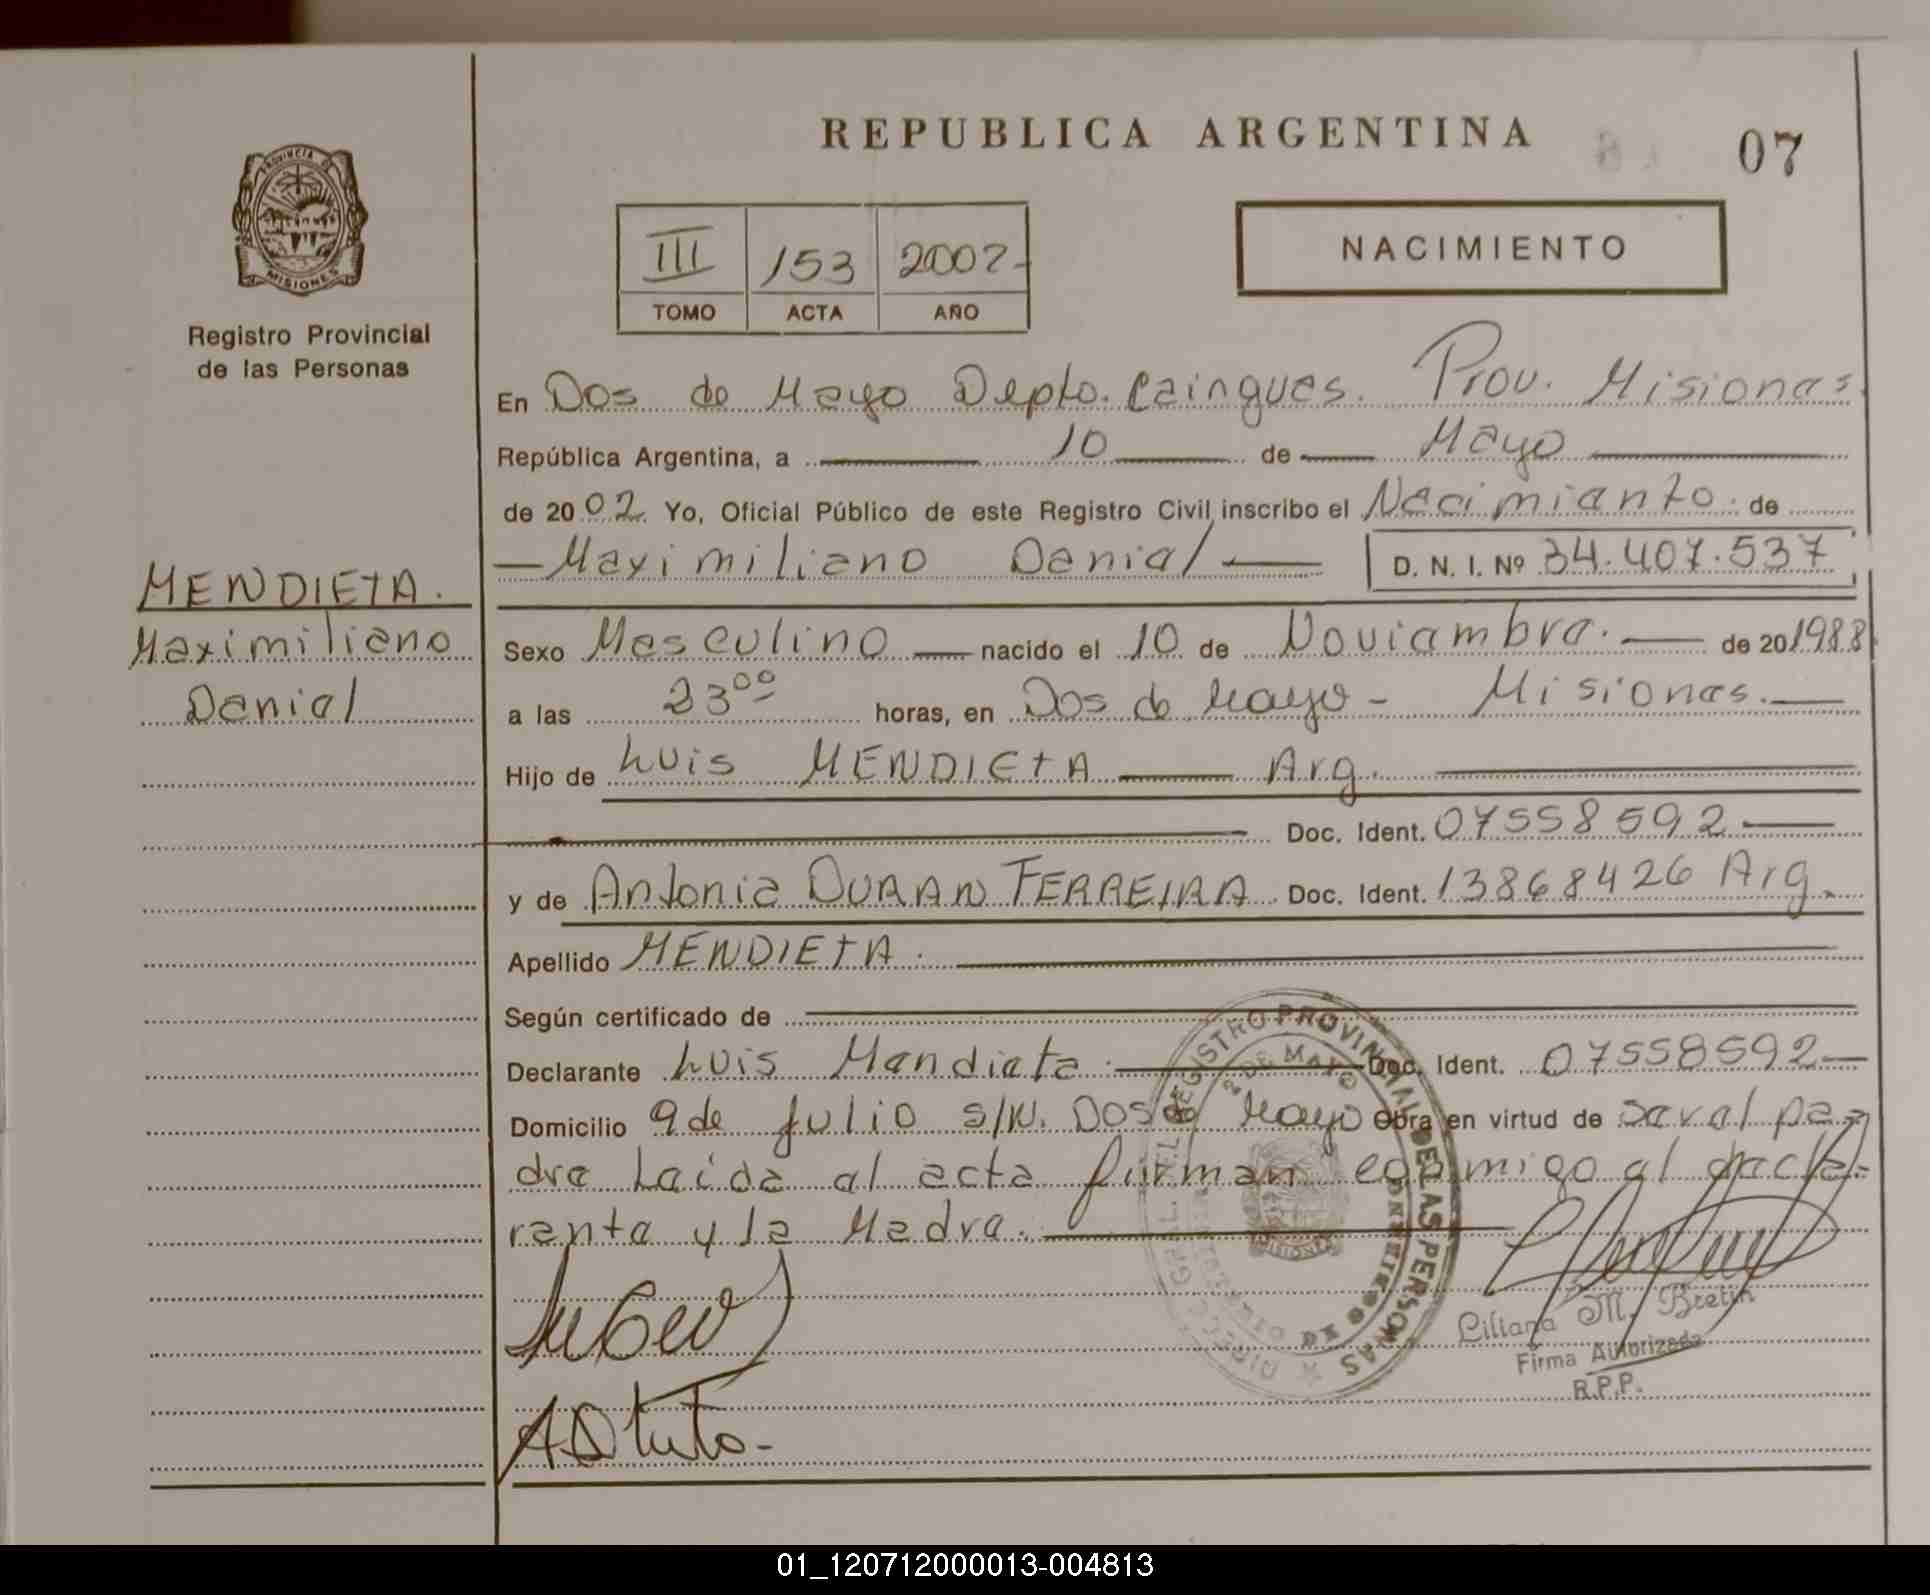 REPUBLICA ARGENTINA
07
PROVINCIA DE
MISIONES
Registro Provincial
de las Personas
III 153 2002
TOMO ACTA AÑO
NACIMIENTO
En Dos de Mayo Depto. Cainguas. Prov. Misiones.
República Argentina, a 10 de Mayo
de 2002 Yo, Oficial Público de este Registro Civil inscribo el Nacimiento de
Maximiliano Daniel D. N. I. Nº 34.407.537
MENDIETA.
Maximiliano
Daniel
Sexo Masculino nacido el 10 de Noviembre. de 20 1988
a las 23⁰⁰ horas, en Dos de Mayo - Misiones.
Hijo de Luis MENDIETA Arg.
Doc. Ident. 07558592
y de Antonia DURAN FERREIRA Doc. Ident. 13868426 Arg.
Apellido MENDIETA.
Según certificado de
Declarante Luis Mendieta. Doc. Ident. 07558592
Domicilio 9 de Julio s/N. Dos de Mayo Obra en virtud de ser el pa-
dre Leída el acta firman conmigo el decla-
rante y la Madre.
REGISTRO PROVINCIAL DE LAS PERSONAS
DE MAYO
MISIONES
Liliana M. Bretin
Firma Autorizada
R.P.P.
01_120712000013-004813